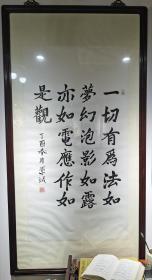 一切有爲法如
夢幻泡影如露
亦如電應作如
是觀
丁酉春月